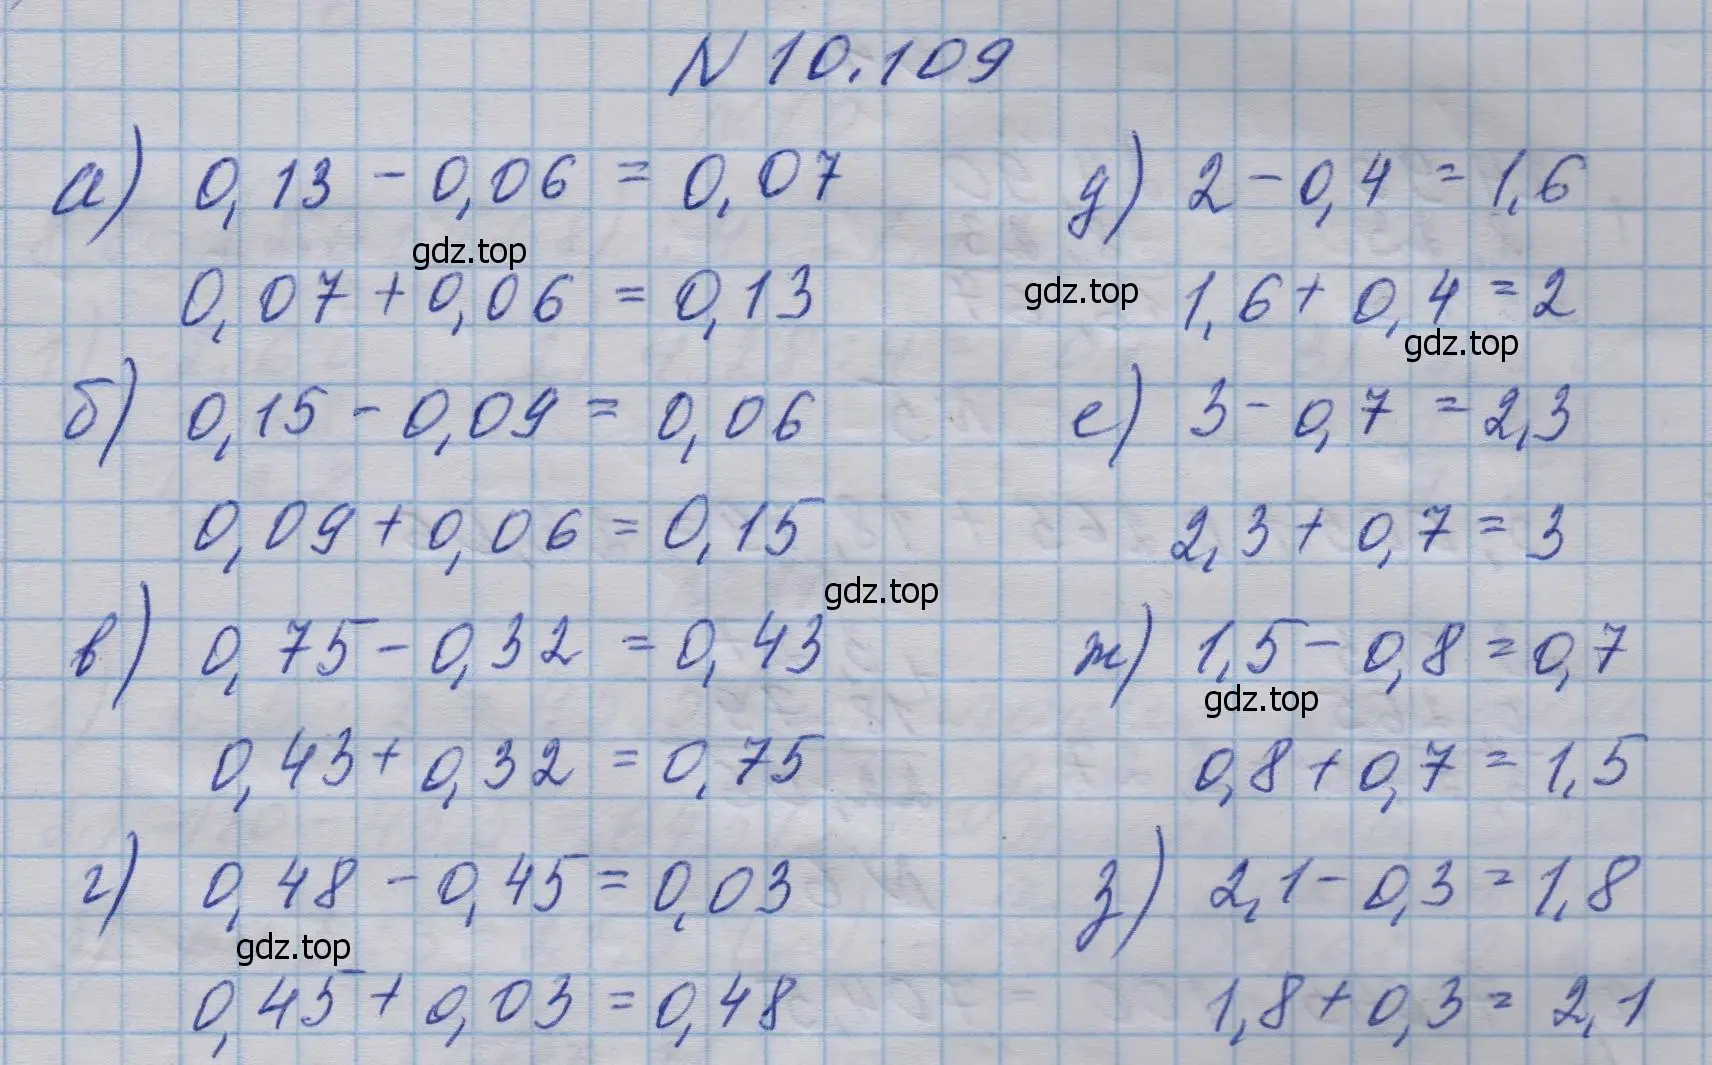 N 10.109
а) 0,13 - 0,06 = 0,07
gdz.top
0,07 + 0,06 = 0,13
б) 0,15 - 0,09 = 0,06
0,09 + 0,06 = 0,15
gdz.top
в) 0,75 - 0,32 = 0,43
0,43 + 0,32 = 0,75
г) 0,48 - 0,45 = 0,03
gdz.top
0,45 + 0,03 = 0,48
д) 2 - 0,4 = 1,6
gdz.top
1,6 + 0,4 = 2
gdz.top
е) 3 - 0,7 = 2,3
2,3 + 0,7 = 3
ж) 1,5 - 0,8 = 0,7
gdz.top
0,8 + 0,7 = 1,5
з) 2,1 - 0,3 = 1,8
1,8 + 0,3 = 2,1